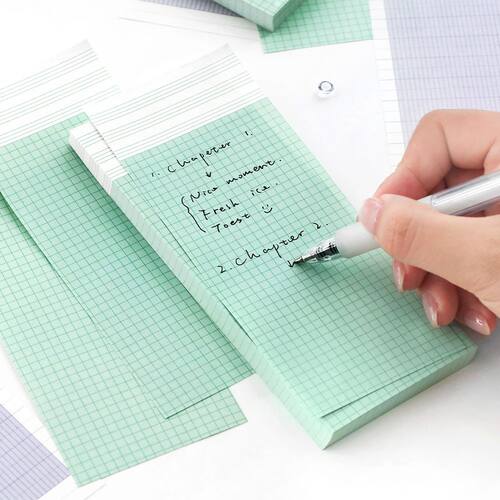 1. Chapeter 1.
↓
Nice moment.
Fresh ice.
Toest ☺
2. Chapter 2.